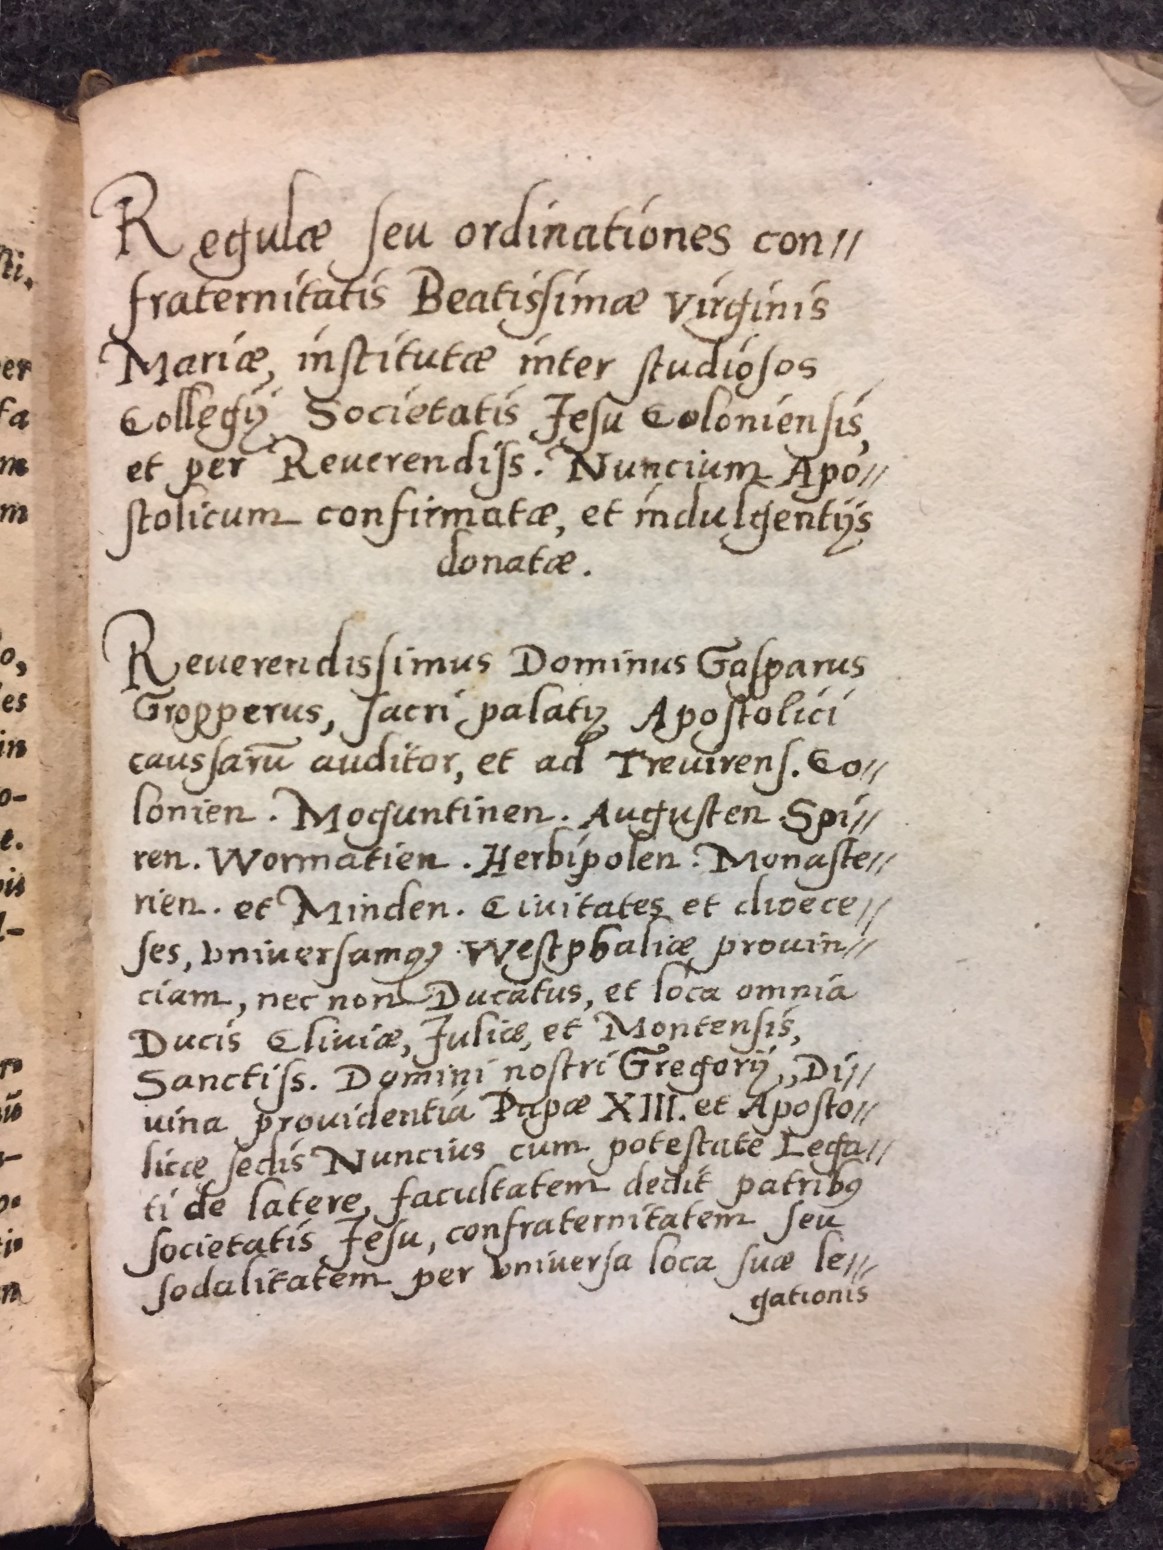 Regulæ seu ordinationes con//
fraternitatis Beatissimæ Virginis
Mariæ, institutæ inter studiosos
Collegij Societatis Jesu Coloniensis,
et per Reuerendiss. Nuncium Apo//
stolicum confirmatæ, et indulgentijs
donatæ.
Reuerendissimus Dominus Gasparus
Gropperus, sacri palatij Apostolici
caussarū auditor, et ad Treuirens. Co//
lonien. Moguntinen. Augusten. Spi//
ren. Wormatien. Herbipolen: Monaste//
rien. et Minden. Ciuitates et dioece//
ses, vniuersamq; Westphaliæ prouin//
ciam, nec non Ducatus, et loca omnia
Ducis Cliuiæ, Juliæ, et Montensis,
Sanctiss. Domini nostri Gregorij, Di//
uina prouidentia Papæ XIII. et Aposto//
licæ sedis Nuncius cum potestate Lega//
ti de latere, facultatem dedit patribꝰ
societatis Jesu, confraternitatem seu
sodalitatem per vniuersa loca suæ le//
gationis